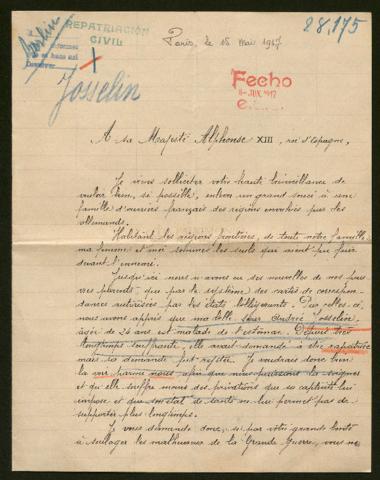 28,175
REPATRIACIÓN
CIVIL
Berlin
Josselin
Paris, le 15 Mai 1917
Fecho
JUN. 1917
A sa Majesté Alphonse XIII, roi d'Espagne,
Je viens solliciter votre haute bienveillance de
vouloir bien, si possible, enlever un grand souci à une
famille d'ouvriers français des régions envahies par les
allemands.
Habitant les régions frontières, de toute notre famille,
ma femme et moi sommes les seuls qui aient pu fuir
devant l'ennemi.
Jusqu'ici nous n'avons eu des nouvelles de nos pau
vres parents que par le système des cartes de correspon
dances autorisées par les états belligérants. Par celles-ci,
nous avons appris que ma belle sœur Andrée Josselin,
âgée de 24 ans est malade de l'estomac. Depuis très
longtemps souffrante, elle avait demandé à être rapatriée
mais sa demande fut rejetée. Je voudrais donc bien
la voir parmi nous afin que nous puissions la soigner
et qu'elle souffre moins des privations que sa captivité lui
impose et que son état de santé ne lui permet pas de
supporter plus longtemps.
Je vous demande donc, si par votre grande bonté
à soulager les malheureux de la Grande Guerre, vous ne